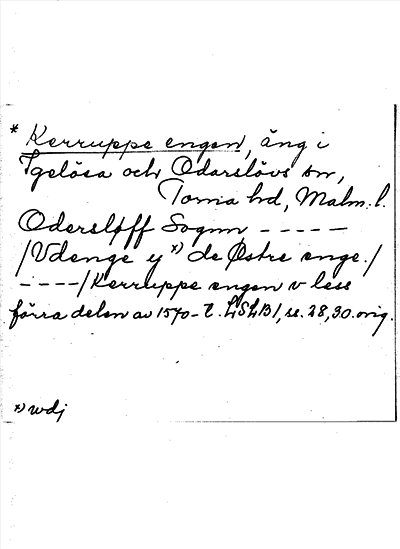 * Kerruppe engen, äng i
Igelösa och Odarslövs sn,
Torna hd, Malm. l.
Odersløff Sogn, -----
/Vdenge y *) de Østre enge./
----/Kerruppe engen v less
förra delen av 1570-t. LSLB1, s. 28, 30. orig.
*) udj